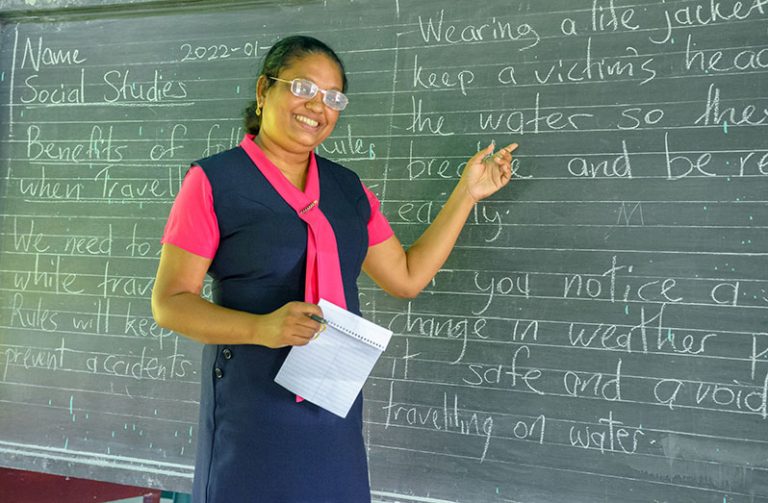 Name
2022-01-
Social Studies
Benefits of Rules
when
We need to
while
Rules will keep
prevent accidents.
Wearing a life jacket
keep a victim's head
the water so they
and be
M
you notice a
change in weather
safe and avoid
travelling on water.